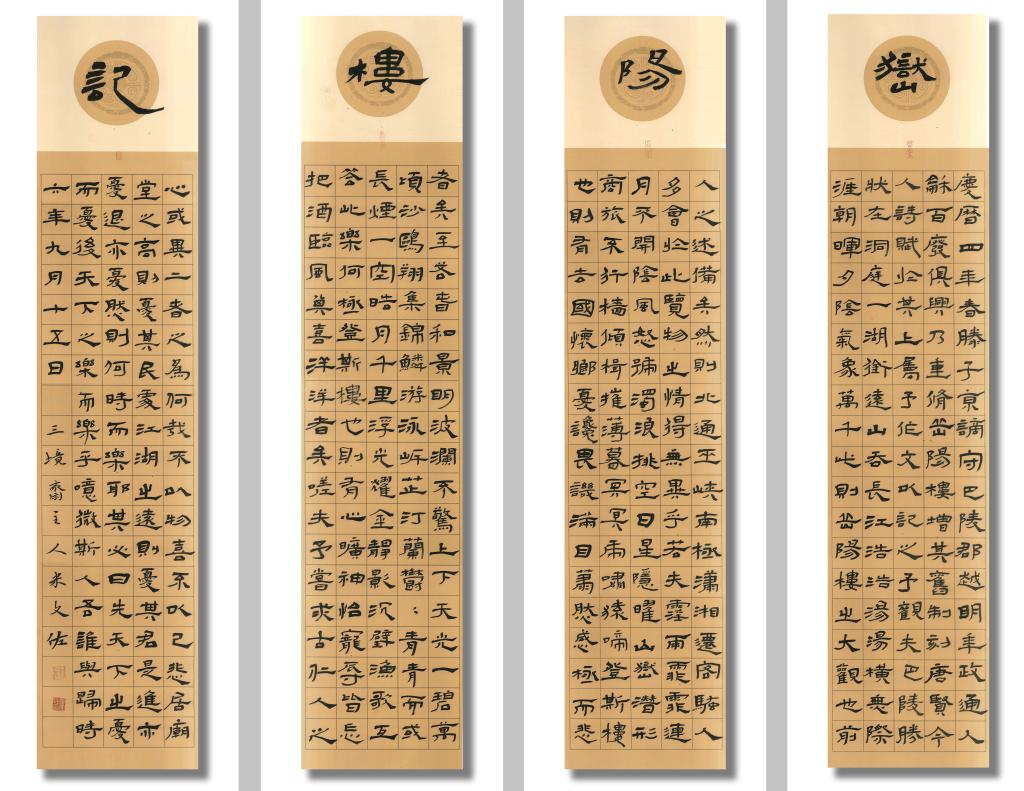 嶽
慶曆四年春滕子京謫守巴陵郡越明年政通人
龢百廢俱興乃重脩岳陽樓增其舊制刻唐賢今
人詩賦於其上屬予作文以記之予觀夫巴陵勝
狀在洞庭一湖銜遠山吞長江浩浩湯湯橫無際
涯朝暉夕陰氣象萬千此則岳陽樓之大觀也前
陽
人之述備矣然則北通巫峽南極瀟湘遷閣騷人
多會於此覽物之情得無異乎若夫霪雨霏霏連
月不開陰風怒號濁浪排空日星隱曜山嶽潛形
商旅不行檣傾楫摧薄暮冥冥虎嘯猿啼登斯樓
也則有去國懷鄉憂讒畏譏滿目蕭然感極而悲
樓
者矣至若春和景明波瀾不驚上下天光一碧萬
頃沙鷗翔集錦鱗游泳岸芷汀蘭鬱〻青青而或
長煙一空皓月千里浮光耀金靜影沉璧漁歌互
答此樂何極登斯樓也則有心曠神怡寵辱皆忘
把酒臨風其喜洋洋者矣嗟夫予嘗求古仁人之
記
心或異二者之為何哉不以物喜不以己悲居廟
堂之高則憂其民處江湖之遠則憂其君是進亦
憂退亦憂然則何時而樂耶其必曰先天下之憂
而憂後天下之樂而樂乎噫微斯人吾誰與歸時
六年九月十五日 三境齋主人米文佐